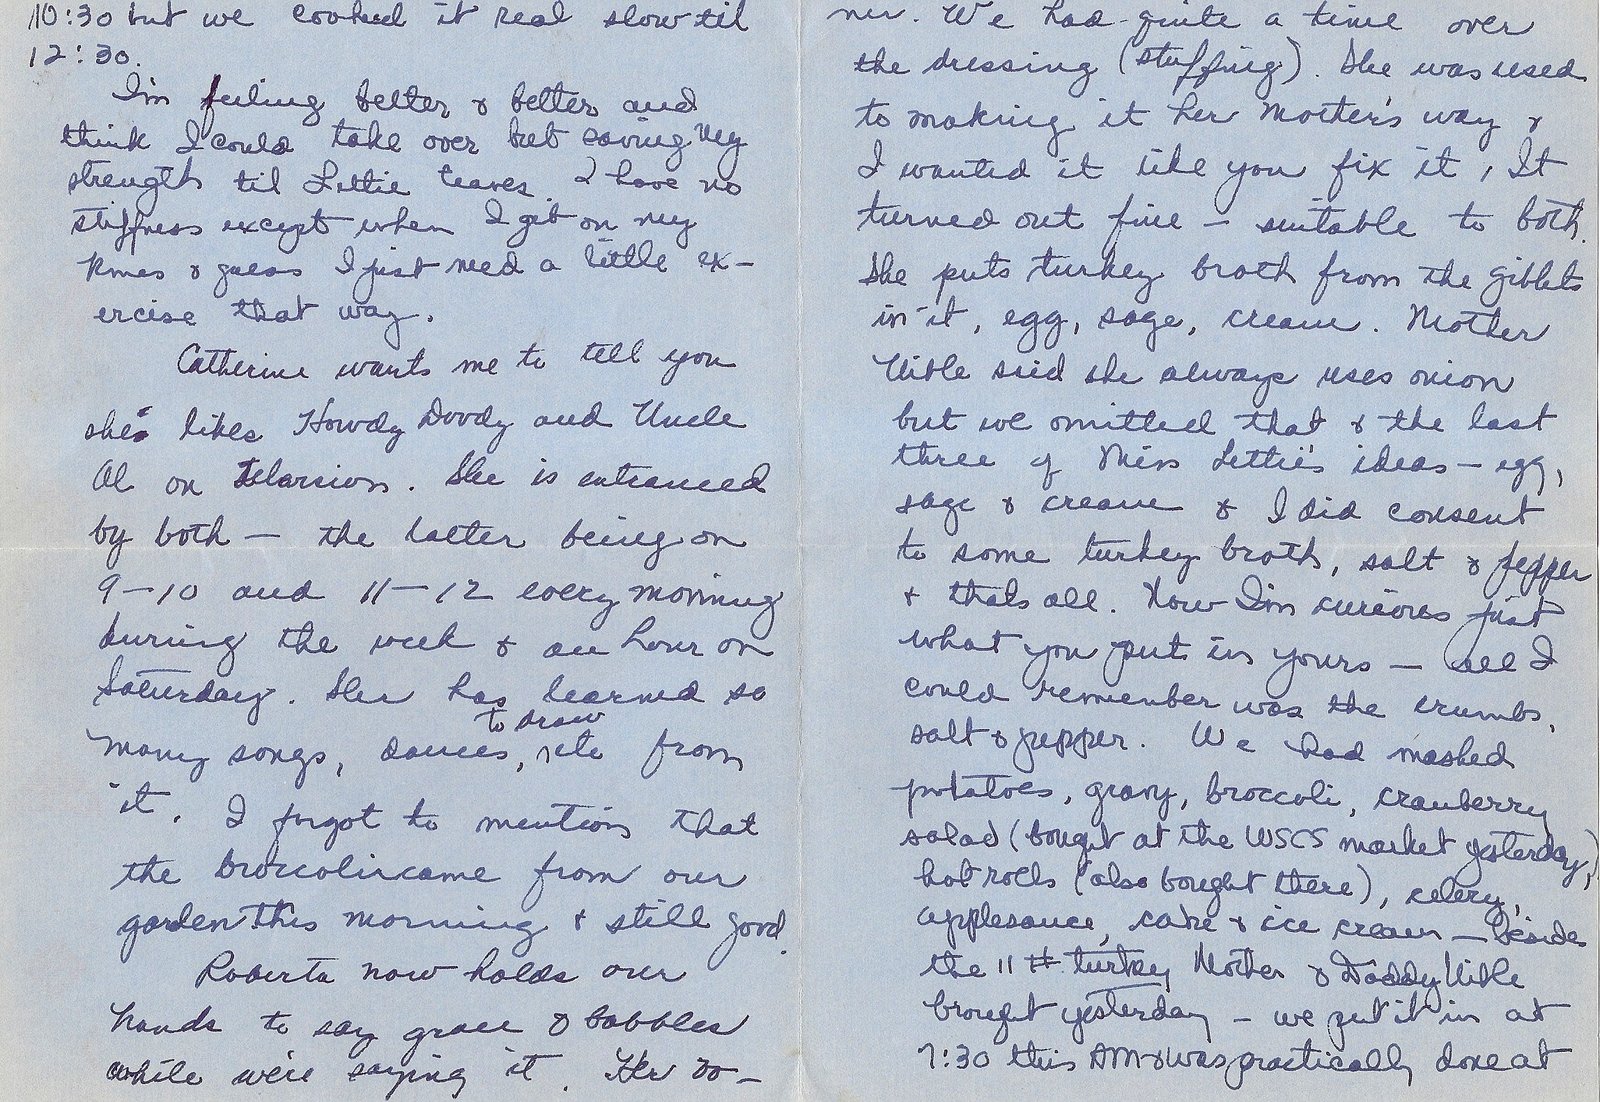 10:30 but we cooked it real slow til
12:30.
I'm feeling better & better and
think I could take over but saving my
strength til Lettie leaves I have no
stiffness except when I get on my
knees & guess I just need a little ex-
ercise that way.
Catherine wants me to tell you
she likes Howdy Doody and Uncle
Al on . She is entranced
by both — the latter being on
9-10 and 11-12 every morning
during the week & an hour on
Saturday. She has learned so
to draw
many songs, dances, etc from
it. I forgot to mention that
the broccoli came from our
garden this morning & still good.
Roberta now holds our
hands to say grace & babbles
while we're saying it. Her do-
ner. We had quite a time over
the dressing (stuffing). She was used
to making it her Mother's way &
I wanted it like you fix it, It
turned out fine — suitable to both.
She puts turkey broth from the giblets
in it, egg, sage, cream. Mother
said she always uses onion
but we omitted that & the last
three of Miss Lettie's ideas — egg,
sage & cream & I did consent
to some turkey broth, salt & pepper
& thats all. Now I'm curious just
what you put in yours — all I
could remember was the crumbs,
salt & pepper. We had mashed
potatoes, gravy, broccoli, cranberry
salad (bought at the WSCS market yesterday),
hot rolls (also bought there), celery,
applesauce, cake & ice cream — besides
the 11# turkey Mother & Daddy
brought yesterday — we put it in at
7:30 this AM & was practically done at